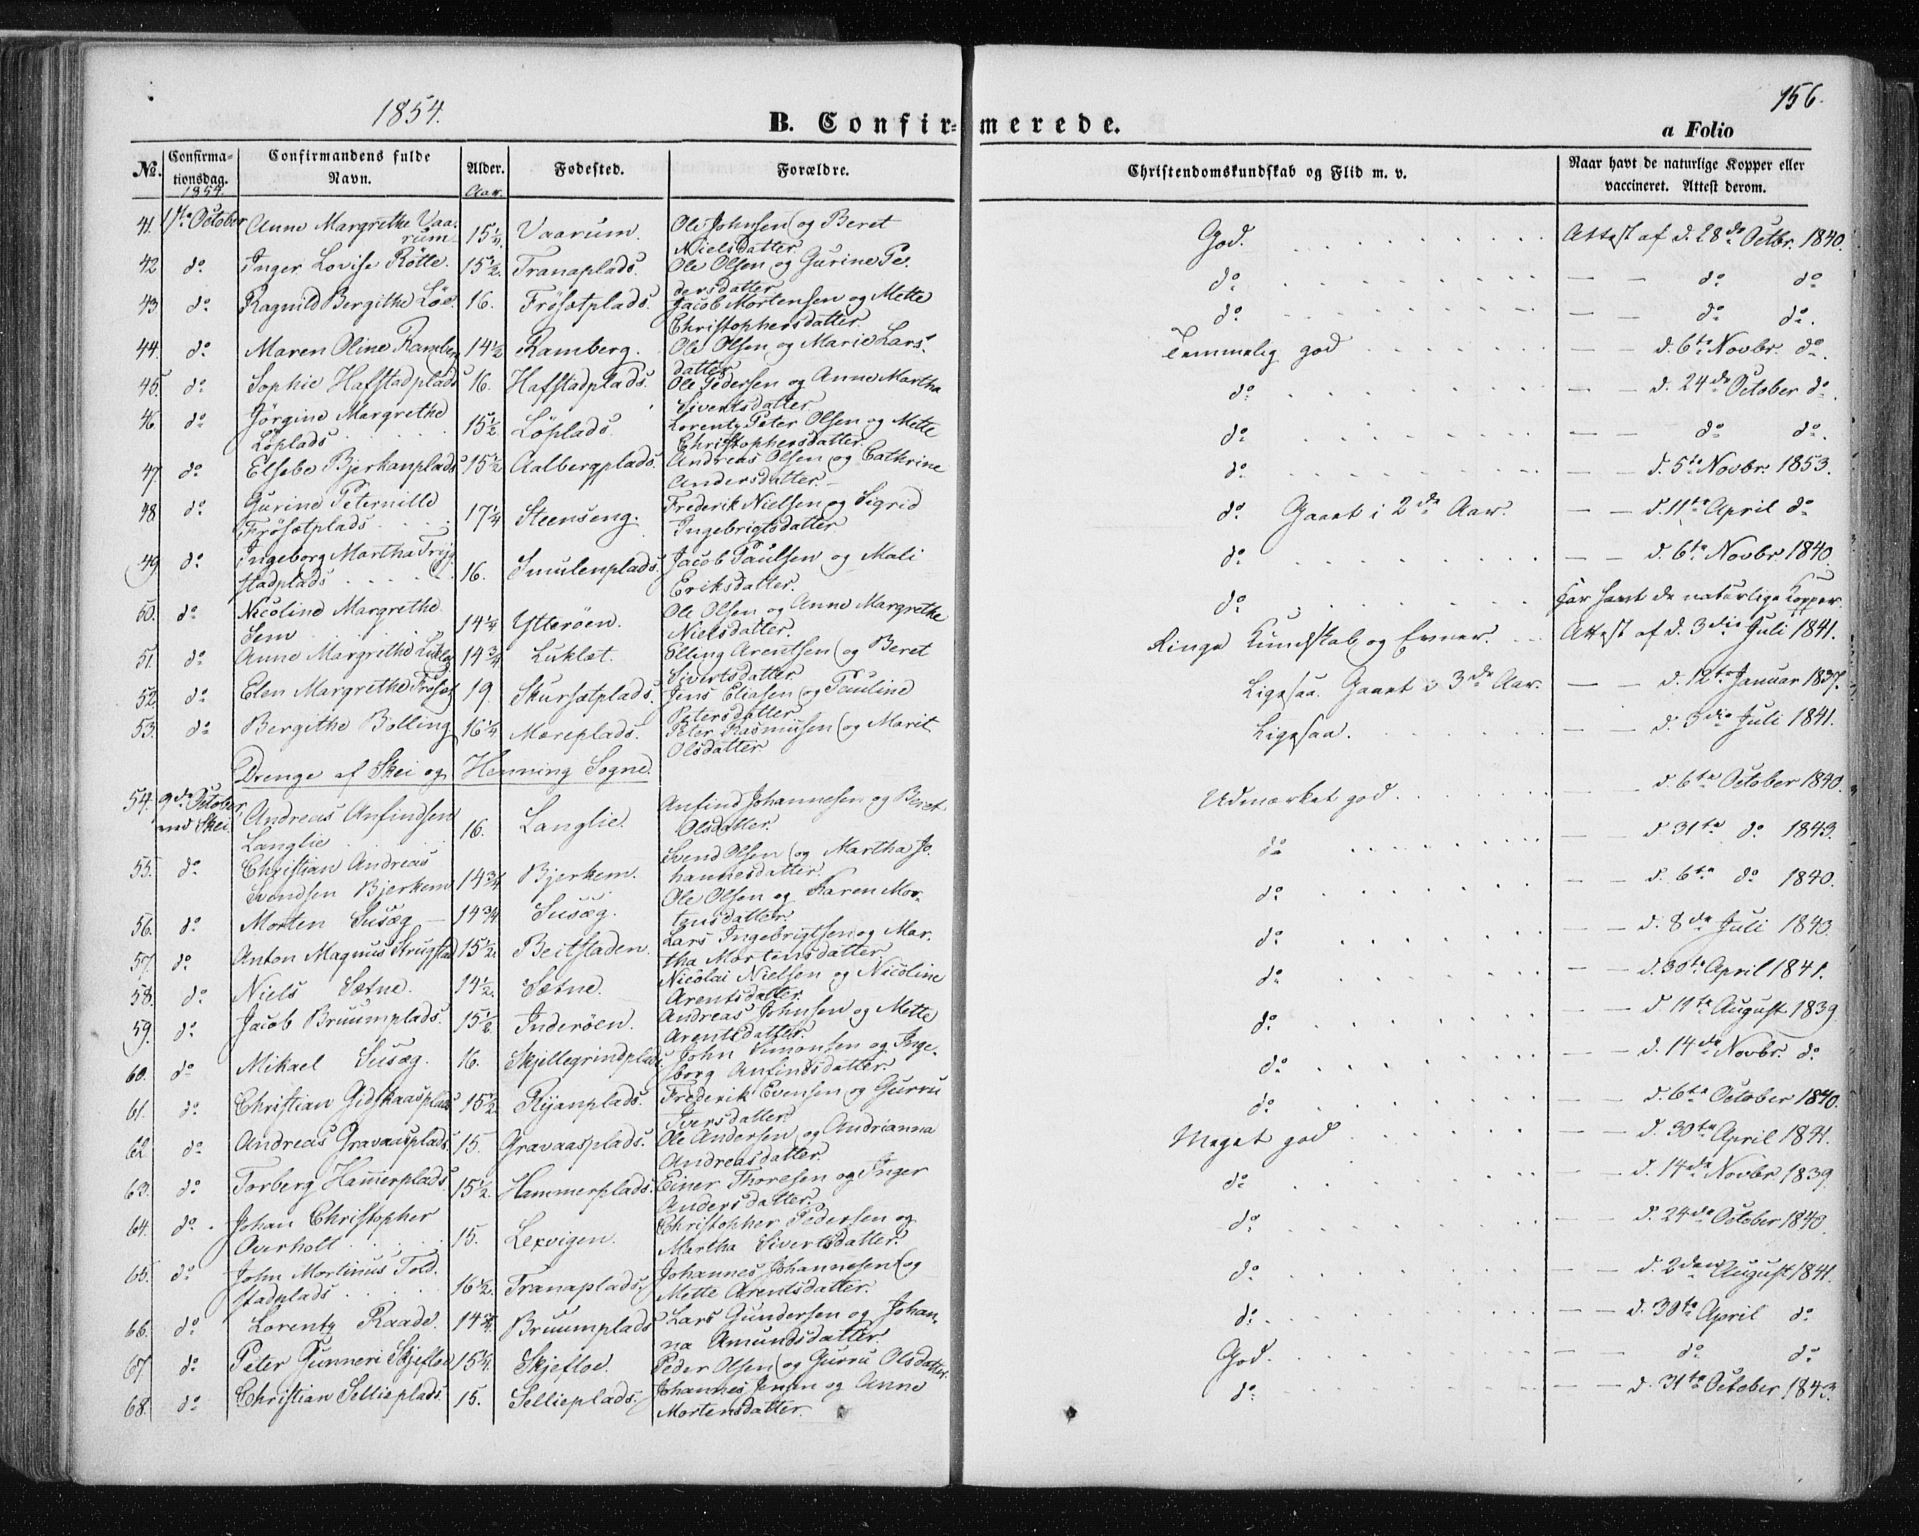 1854.
156.
B. Confirmerede.
a Folio
No. Confirmationsdag. 1854. Confirmandens fulde Navn. Alder. Aar. Fødested. Forældre. Christendomskundskab og Flid m. v. Naar havt de naturlige Kopper eller vaccineret. Attest derom.
41. 1ste October Anne Margrethe Vaarum. 15 1/4 Vaarum. Ole Johnsen og Beret Nielsdatter God. Attest af d. 28de Octbr. 1840.
42 do Inger Lovise Røtte. 15 1/2. Tranaplads. Ole Olsen og Gurine Pedersdatter do — — do do
43 do Ragnild Bergithe Løe. 16. Frøsetplads. Jacob Mortensen og Mette Christophersdatter. do — — do do.
44. do Maren Oline Ramberg 14 1/2 Ramberg. Ole Olsen og Marie Larsdatter Temmelig god — — d. 6te Novbr. do.
45. do Sophie Hafstadplads 16. Hafstadplads. Ole Pedersen og Anne Martha Sivertsdatter do — — d. 24de October do.
46 do Jørgine Margrethe Løplads 15 1/2 Løplads. Lorentz Peter Olsen og Mette Christophersdatter. do — — do do.
47. do Elsebe Bjerkanplads 15 1/2 Aalbergplads. Andreas Olsen og Cathrine Andersdatter. do — — d. 5te Novbr. 1853.
48 do Gurine Peternille Frøsetplads 17 1/4 Steenseng. Frederik Nielsen og Sigrid Ingebrigtsdatter do. Gaaet i 2de Aar. — — d. 11te April do
49 do Ingeborg Martha Trygstadplads 16. Smulenplads. Jacob Paulsen og Mali Eriksdatter. do — — d. 6te Novbr. 1840.
50. do Nicoline Margrethe Sem 14 1/4 Ytterøen. Ole Olsen og Anne Margrethe Nielsdatter. do Har havt de naturlige Kopper.
51. do Anne Margrethe Luklet 14 3/4 Luklet. Elling Arentsen og Beret Sivertsdatter Ringe Kundskab og Evner. Attest af d. 3die Juli 1841.
52. do Elen Margrethe Frøset 19. Skursetplads. Jens Eliasen og Pauline Petersdatter Ligesaa. Gaaet i 3de Aar. — — d. 12te Januar 1837.
53. do Bergithe Bolling 16 1/4 Mæreplads. Peter Rasmussen og Marit Olsdatter Ligesaa. — — d. 3die Juli 1841.
Drenge af Skei og Henning Sogne.
54. 9de October ved Skei. Andreas Anfindsen Langlie 16. Langlie. Anfind Johannesen og Beret Olsdatter. Udmærket god — — d. 6te October 1840.
55. do Christian Andreas Svendsen Bjerkem 14 3/4 Bjerkem. Svend Olsen og Martha Johannesdatter. do — — d. 31te do 1843.
56. do Morten Susæg 14 3/4 Susæg. Ole Olsen og Karen Mortensdatter. do — — d. 6te do 1840.
57. do Anton Magnus Strugstad 15 1/2. Beitstaden. Lars Ingebrigtsen og Martha Mortensdatter. do — — d. 8de Juli 1840.
58. do Niels Sætne. 14 1/2. Sætne. Nicolai Nielsen og Nicoline Arentsdatter. do — — d. 30te April 1841.
59. do Jacob Bruumplads. 15 1/2 Inderøen. Andreas Johnsen og Mette Arentsdatter. do — — d. 11te August 1839
60. do Mikael Susæg. 16. Skjellegrindplads John Simonsen og Ingeborg Anfindsdatter do — — d. 14de Novbr. do
61. do Christian Gidskaasplads 15 1/2 Ryanplads. Frederik Evensen og Gurru Iversdatter. do — — d. 6te October 1840.
62 do Andreas Gravaasplads. 15. Gravaasplads. Ole Andersen og Andrianna Andreasdatter. Meget god — — d. 30te April 1841.
63. do Torberg Hamerplads. 15 1/2. Hammerplads. Einer Thoresen og Inger Andersdatter. do — — d. 14de Novbr. 1839.
64. do. Johan Christopher Overholt 15. Lexvigen. Christopher Pedersen og Martha Sivertsdatter. do — — d. 24de October 1840.
65. do John Mortinus Toldstadplads 16 1/2. Tranaplads. Johannes Johannesen og Mette Arentsdatter. do — — d. 2den August 1841.
66. do Lorentz Raade. 14 3/4. Bruumplads Lars Gundersen og Johanna Amundsdatter. do — — d. 30te April do
67 do Peter Gunneri Skjefloe 15 1/4. Skjefloe. Peder Olsen og Gurru Olsdatter. God. — — do do
68. do Christian Sellieplads. 15. Sellieplads. Johannes Jensen og Anne Mortensdatter. do — — d. 31te October 1843.